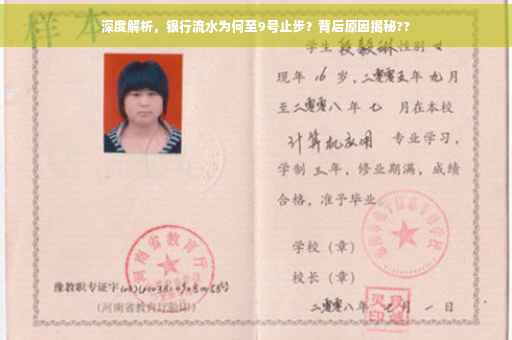 深度解析，银行流水为何至9号止步？背后原因揭秘??
样本
学生段毅琳性别女
现年16岁，二零零五年九月
至二零零八年七 月在本校
计算机应用 专业学习，
学制三年，修业期满，成绩
合格，准予毕业
学校（章）
校长（章）
二零零八年 月一日
河南省教育厅
豫教职专证字
(河南省教育厅验印)